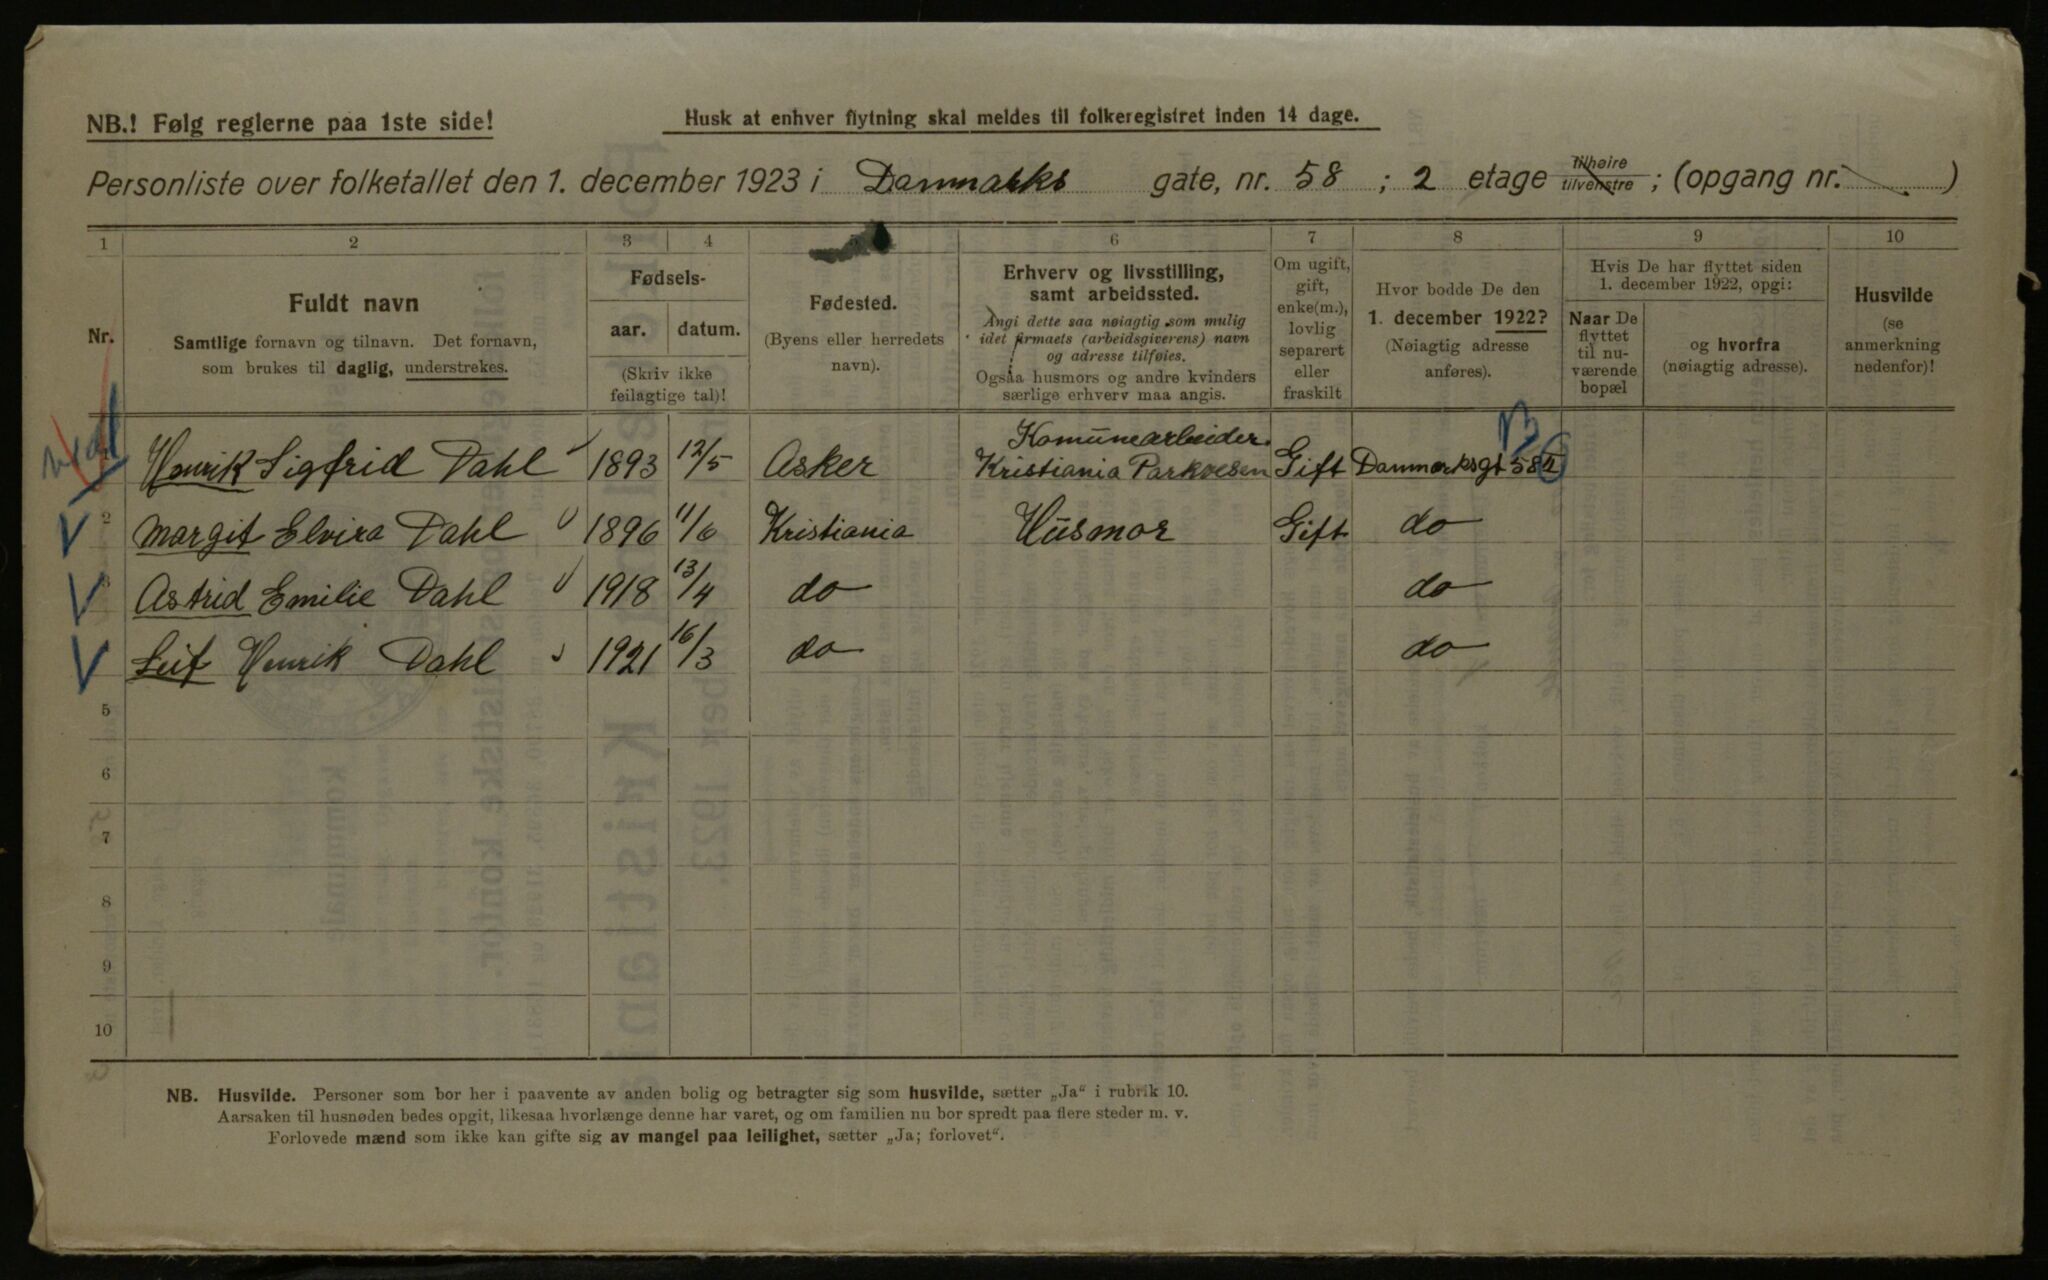 NB.! Følg reglerne paa 1ste side!
Husk at enhver flytning skal meldes til folkeregistret inden 14 dage.
Personliste over folketallet den 1. december 1923 i Danmarks gate, nr. 58 ; 2 etage tilhøire tilvenstre ; (opgang nr. )
1 2 3 4 5 6 7 8 9 10
Nr.
Fuldt navn
Samtlige fornavn og tilnavn. Det fornavn,
som brukes til daglig, understrekes.
Fødsels-
aar. datum.
(Skriv ikke
feilagtige tal)!
Fødested.
(Byens eller herredets
navn).
Erhverv og livsstilling,
samt arbeidssted.
Angi dette saa nøiagtig som mulig
idet firmaets (arbeidsgiverens) navn
og adresse tilføies.
Ogsaa husmors og andre kvinders
særlige erhverv maa angis.
Om ugift,
gift,
enke(m.),
lovlig
separert
eller
fraskilt
Hvor bodde De den
1. december 1922?
(Nøiagtig adresse
anføres).
Hvis De har flyttet siden
1. december 1922, opgi:
Naar De
flyttet
til nu-
værende
bopæl
og hvorfra
(nøiagtig adresse).
Husvilde
(se
anmerkning
nedenfor)!
Komunearbeider
Henrik Sigfrid Dahl 1893 12/5 Asker Kristiania Parkvesen Gift Danmarksgt 58 II
2 Margit Elvira Dahl 1896 11/6 Kristiania Husmor Gift do
3 Astrid Emilie Dahl 1918 13/4 do do
Leif Henrik Dahl 1921 16/3 do do
5
6
7
8
9
10
NB. Husvilde. Personer som bor her i paavente av anden bolig og betragter sig som husvilde, sætter „Ja“ i rubrik 10.
Aarsaken til husnøden bedes opgit, likesaa hvorlænge denne har varet, og om familien nu bor spredt paa flere steder m. v.
Forlovede mænd som ikke kan gifte sig av mangel paa leilighet, sætter „Ja; forlovet“.